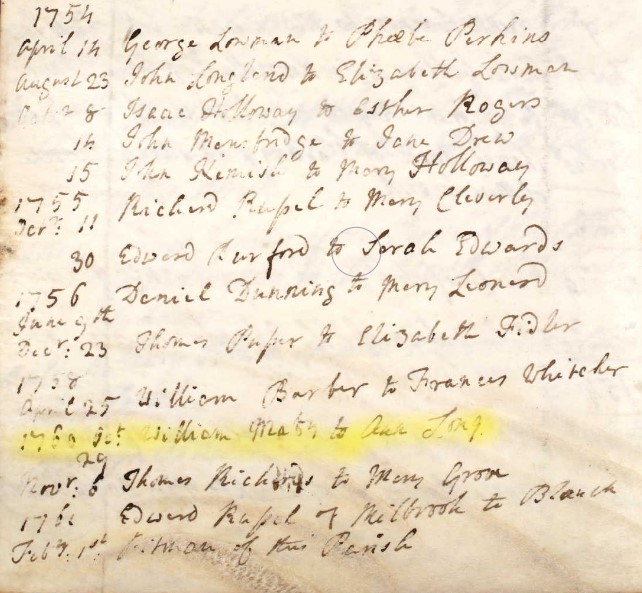 1754
April 14 George Lowman to Phœbe Perkins
August 23 John Longland to Elizabeth Lowman
8 Isaac Holloway to Esther Rogers
14 John to Jane Drew
15 John Kemish to Mary Holloway
1755
Decr: 11 Richard Russel to Mary Cleverly
30 Edward to Sarah Edwards
1756 Daniel Dunning to Mary Leonard
June 9th
Decr: 23 Thomas to Elizabeth Fidler
1758
April 25 William Barber to Frances Whitcher
William to Ann Long
29
Novr: 6 Thomas to Mary
Edward Russel of Milbrook to Blanch
Feby. 1st Pitman of this Parish